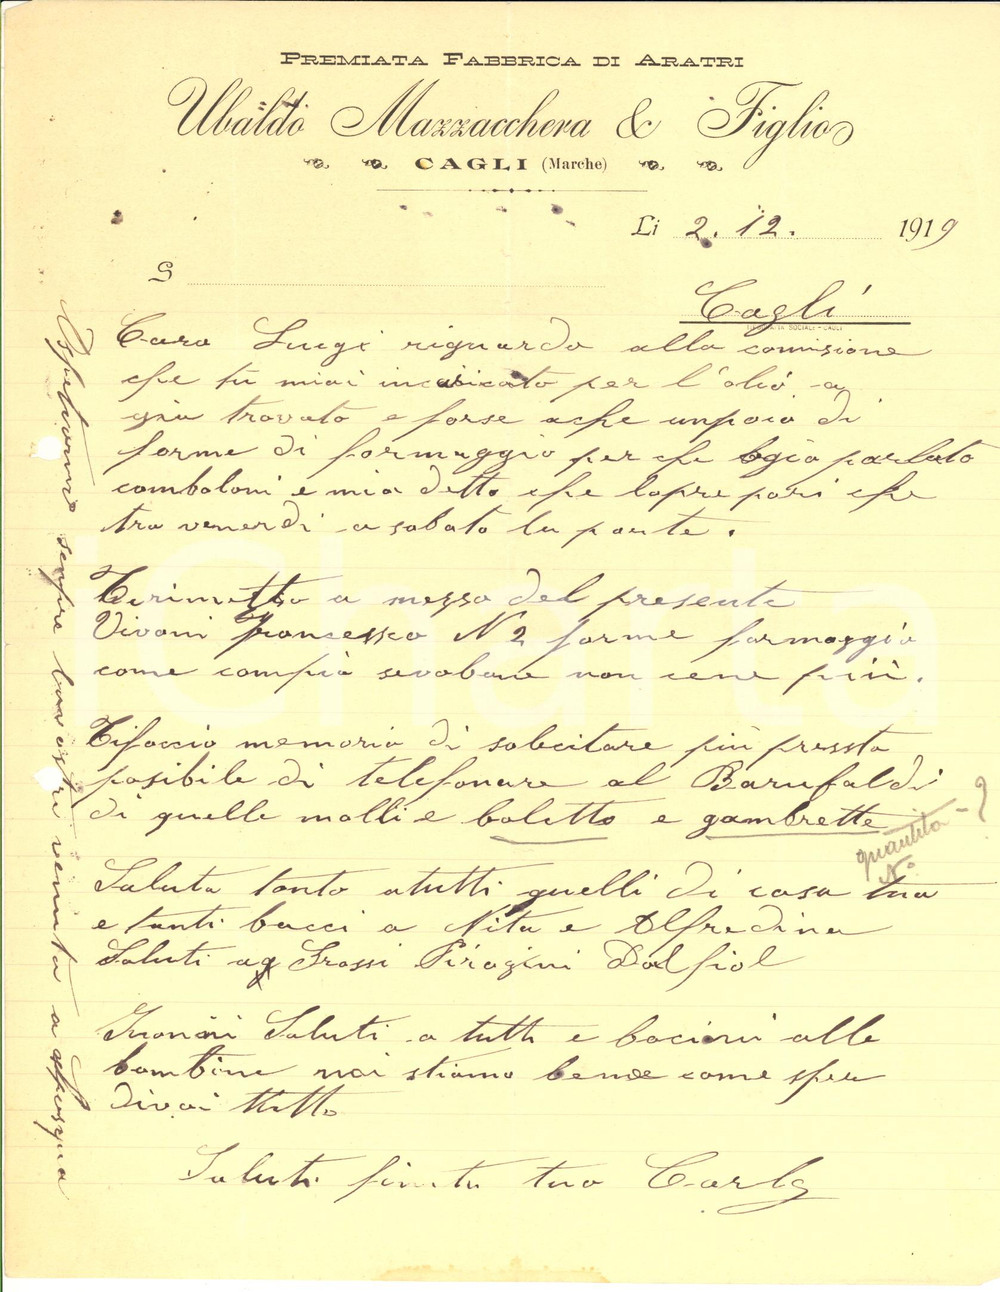 PREMIATA FABBRICA DI ARATRI
Ubaldo Mazzacchera & Figlio
CAGLI (Marche)
Li 2. 12. 1919
S
Cagli
Caro Luigi riguardo alla comisione
che tu miai incaricato per l'olio a
gia trovato e forse ache unpoia di
forme di formaggio per che gia parlato
comboloni e mia detto che lopre pari che
tra venerdi a sabato la parte.
Terimetto a mezzo del presente
Vivani Francessco N 2 forme formaggio
come compia sevobene non cene più.
Tifaccio memoria di solecitare più pressto
posibile di telefonare al Barufaldi
di quelle molli e boletto e gambrette
quantità - ?
N°
Saluta tanto atutti quelli di casa tua
e tanti bacci a Nita e Alfredina
Saluti ag Grassi Piragini Dalfiol
Saluti a tutti e bacioni alle
bambine noi stiamo bene come sper
divoi tutto
Saluti finito tuo Carlo
Aspetiamo sempre la vostre venuta a
ICharta